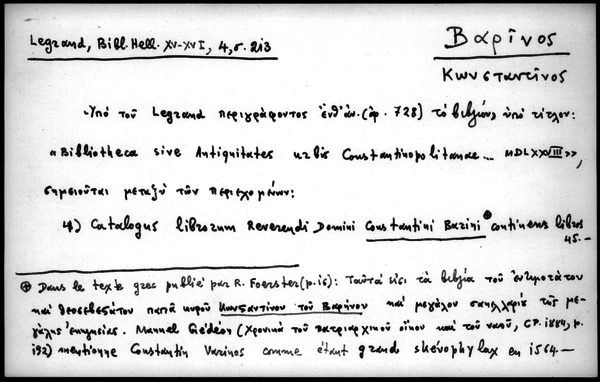 Legrand, Bibl. Hell. XV-XVI, 4, σ. 213
Βαρῖνος
Κωνσταντῖνος
Ὑπὸ τοῦ Legrand περιγράφοντος ἐνθ' ἀν. (ἀρ. 728) τὸ βιβλίον, ὑπὸ τίτλον:
«Bibliotheca sive Antiquitates urbis Constantinopolitanae... MDLXXVIII»,
σημειοῦται μεταξὺ τῶν περιεχομένων:
4) Catalogus librorum Reverendi Domini Constantini Barini ⊕ continens libros
45.—
⊕ Dans le texte grec publié par R. Foerster (p. 16): Ταῦτά εἰσι τὰ βιβλία τοῦ ἐντιμοτάτου
καὶ θεοσεβεστάτου παπᾶ κυροῦ Κωνσταντίνου τοῦ Βαρήνου καὶ μεγάλου σκευοφύλακος τῆς με-
γάλης ἐκκλησίας. Manuel Gédéon (Χρονικὰ τοῦ πατριαρχικοῦ οἴκου καὶ τοῦ ναοῦ, CP. 1884, p.
192) mentionne Constantin Varinos comme étant grand skévophylax en 1564.—